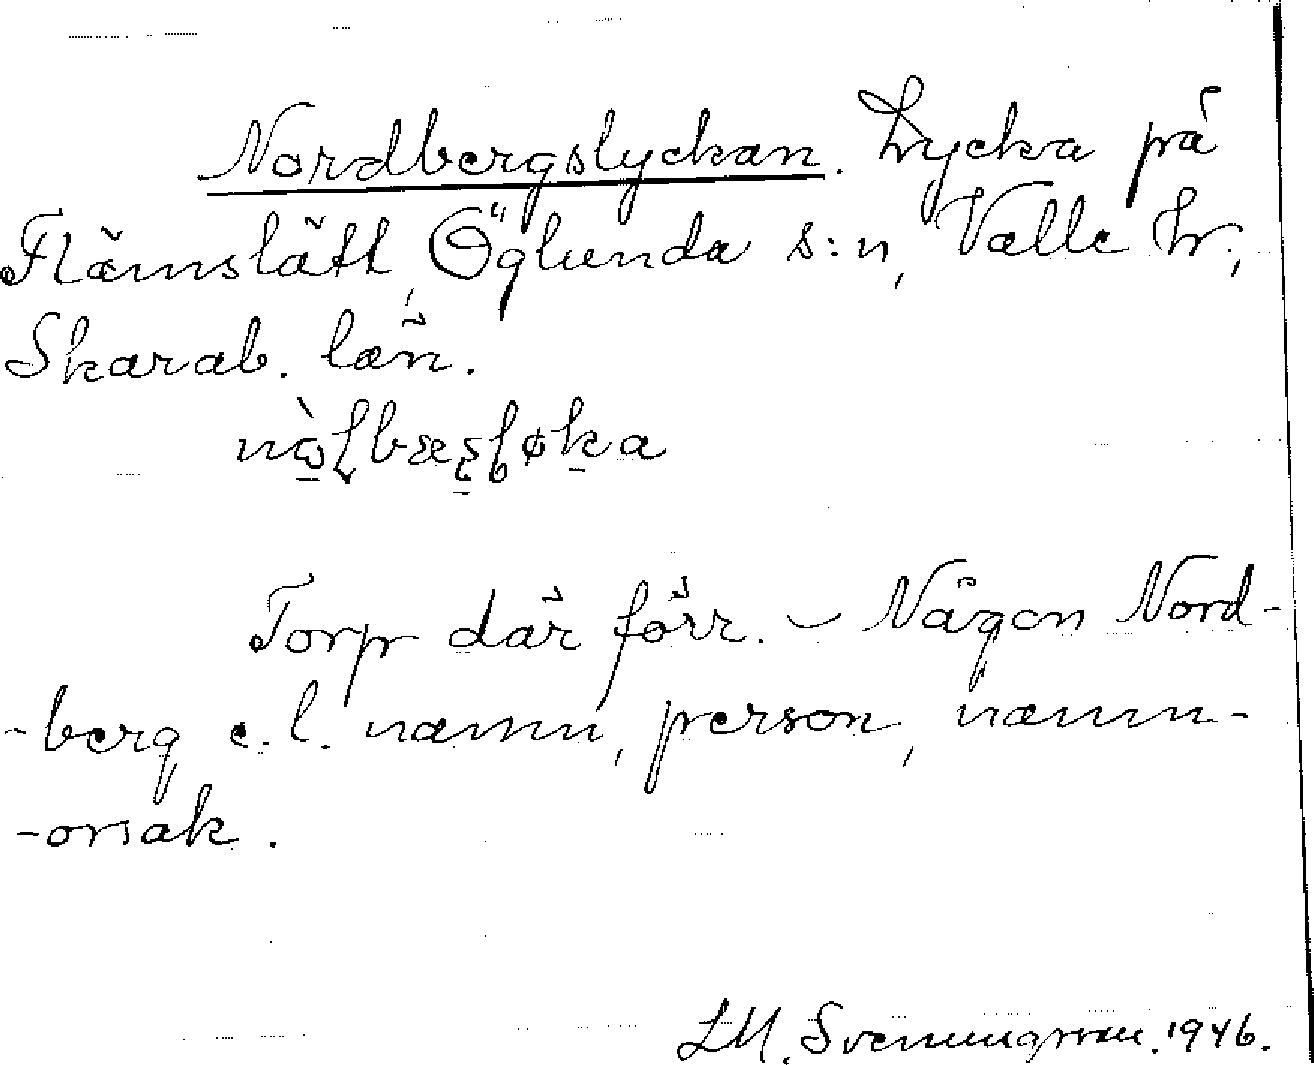 Nordbergslyckan. Lycka på
Flämslätt, Öglunda s:n, Valle hr,
Skarab. län.
Torp där förr. – Någon Nord-
-berg e.l. namn, person, namn-
-orsak.
LM. Svenungsson. 1946.